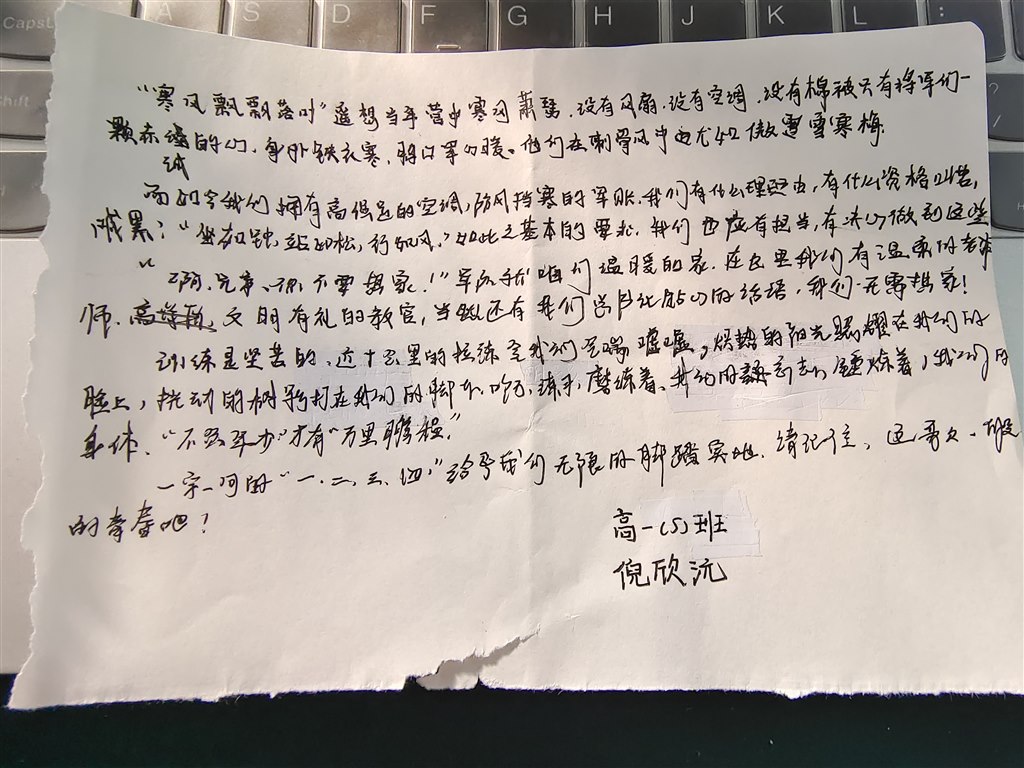 Caps
A
S
D
F
G
H
J
K
L
Shift
"寒风飘飘落叶"遥想当年营中寒风萧瑟，没有风扇，没有空调，没有棉被只有将军们一
颗赤诚的心，身外铁衣寒，将以军心暖。他们在刺骨风中也尤如傲雪寒梅
而如今我们拥有高保足的空调，防风挡寒的军账，我们有什么理由，有什么资格叫苦，
喊累；"坐如钟，站如松，行如风。"如此之基本的要求，我们也应有担当，有决心做到这些
兄弟、不要想家！"军队 咱们温暖的家，在这里我们有温柔的老
师，文明有礼的教官，当然还有我们的话语，我们无需想家！
训练是坚苦的，近十公里的拉练令我们气喘嘘嘘，炽热的阳光照耀在我们的
脸上，晃动的树影打在我们的脚下，磨练着，我们的意志，锤炼着，我们的
身体，"不积跬步"才有"万里鹏程。"
一字一句的"一、二、三、四，"给予我们无限的脚踏实地，请记住，这青春一般
的青春吧！
高一(5)班
倪欣沅